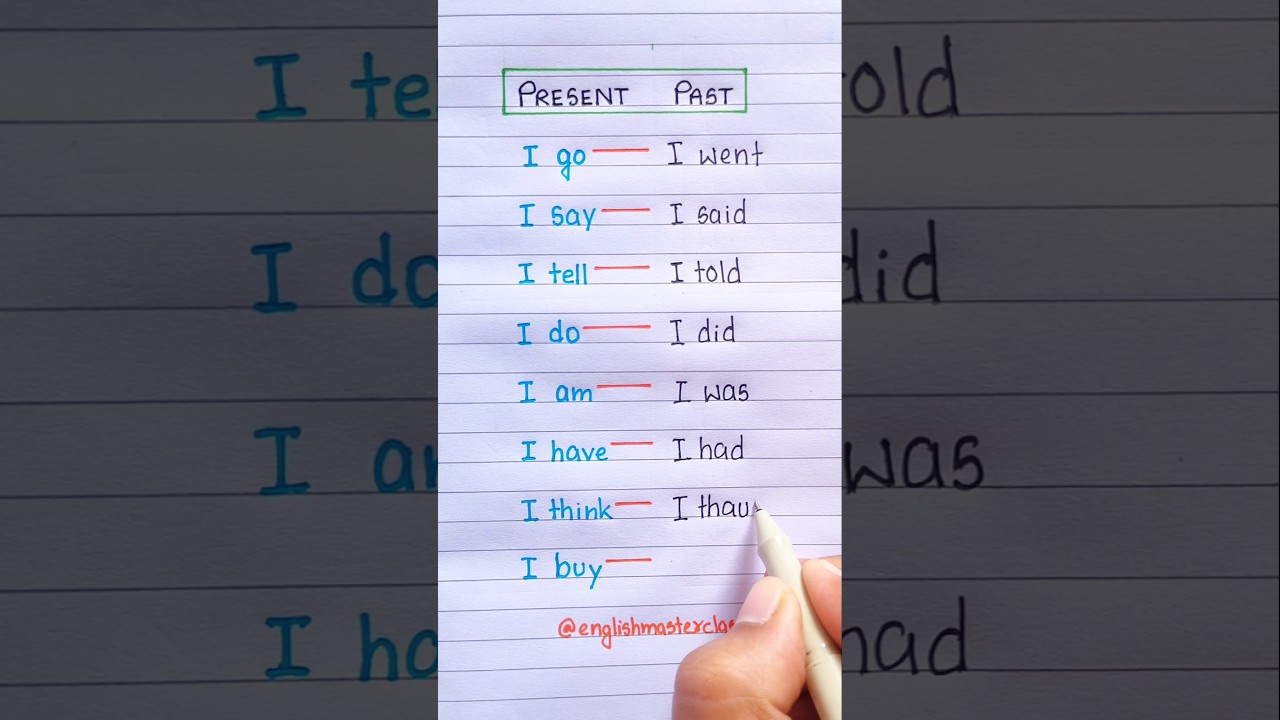 PRESENT PAST
I go — I went
I say — I said
I tell — I told
I do — I did
I am — I was
I have — I had
I think — I thau
I buy —
@englishmastercla